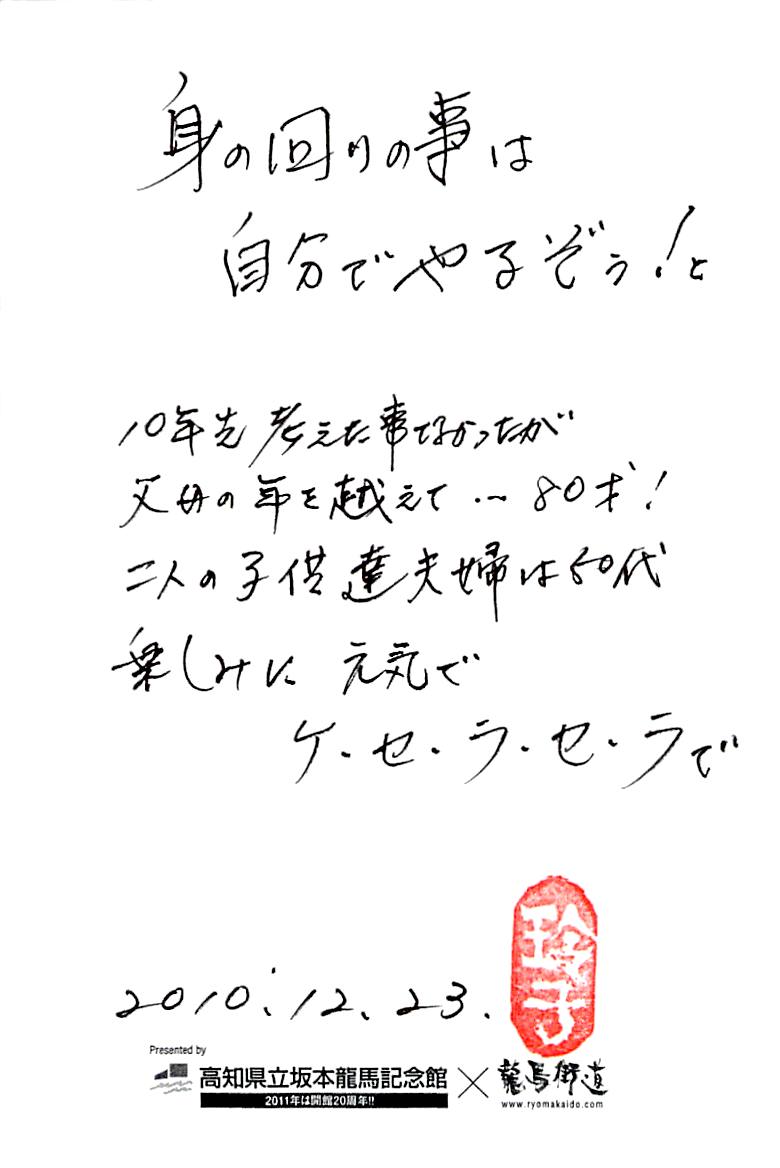 身の回りの事は
自分でやるぞぅ!と
10年先考えた事なかったが
父母の年を越えて…80才!
二人の子供達夫婦は50代
楽しみに 元気で
ケ・セ・ラ・セ・ラで
2010.12.23.
玲子
Presented by
高知県立坂本龍馬記念館×龍馬街道
2011年は開館20周年!!
www.ryomakaido.com